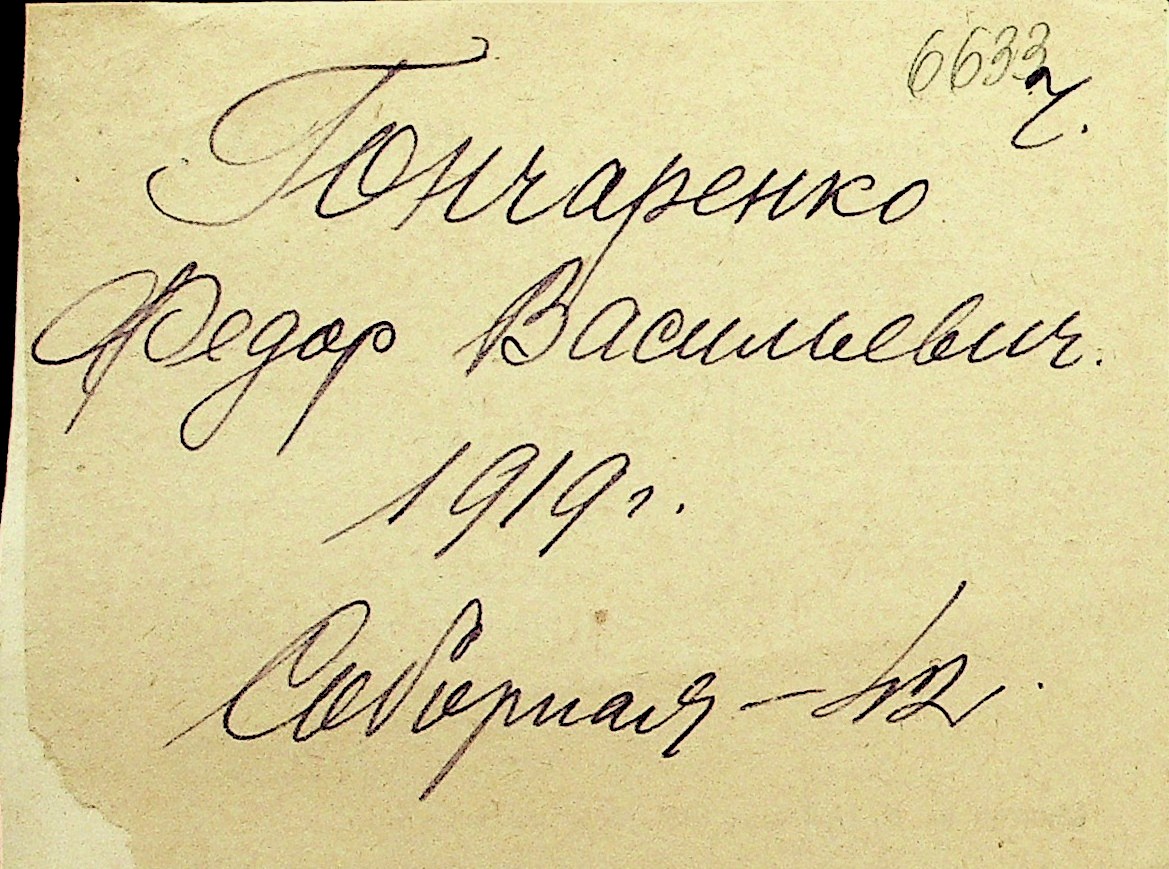 6633
Гончаренко
Федор Васильевич.
1919 г.
Соборная –